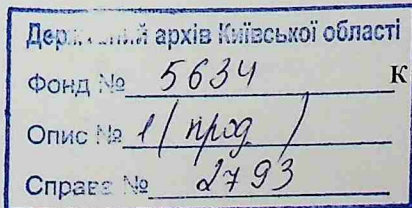 Державний архів Київської області
Фонд № 5634
К
Опис № 1 (прод)
Справа № 2793